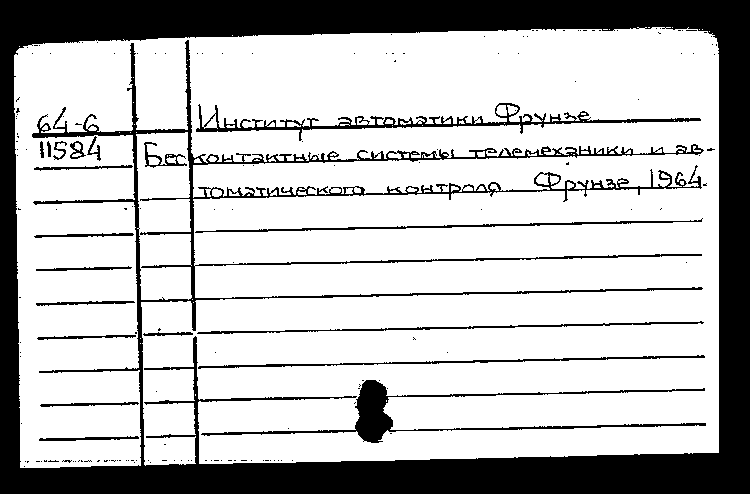 64-6 Институт автоматики Фрунзе
11584 Бесконтактные системы телемеханики и ав-
томатического контроля Фрунзе, 1964.